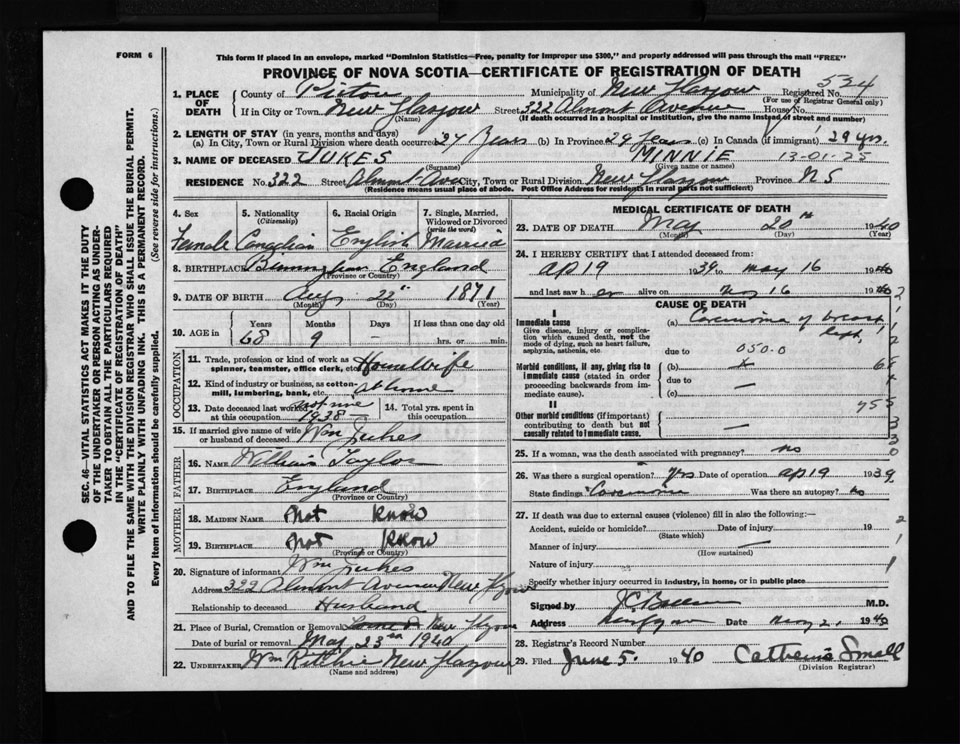 FORM 6
This form if placed in an envelope, marked "Dominion Statistics—Free, penalty for improper use $300," and properly addressed will pass through the mail "FREE"
PROVINCE OF NOVA SCOTIA—CERTIFICATE OF REGISTRATION OF DEATH
534
1. PLACE OF DEATH County of Pictou Municipality of New Glasgow Registered No.
(For use of Registrar General only)
If in City or Town New Glasgow Street 322 Almont Avenue House No.
(Name) (If death occurred in a hospital or institution, give the name instead of street and number)
2. LENGTH OF STAY (in years, months and days)
(a) In City, Town or Rural Division where death occurred 27 Years (b) In Province 29 Years (c) In Canada (if immigrant) 29 yrs.
3. NAME OF DECEASED JUKES MINNIE 13-01-25
(Surname) (Given name or names)
RESIDENCE No. 322 Street Almont Ave City, Town or Rural Division New Glasgow Province N S
(Residence means usual place of abode. Post Office Address for residents in rural parts not sufficient)
4. Sex 5. Nationality (Citizenship) 6. Racial Origin 7. Single, Married, Widowed or Divorced (write the word)
Female Canadian English Married
8. BIRTHPLACE Birmingham England
(Province or Country)
9. DATE OF BIRTH Aug 22" 1871
(Month) (Day) (Year)
10. AGE in Years Months Days If less than one day old
68 9 — hrs. or min.
OCCUPATION
11. Trade, profession or kind of work as spinner, teamster, office clerk, etc. Housewife
12. Kind of industry or business, as cotton-mill, lumbering, bank, etc. at home
13. Date deceased last worked at this occupation 1938 14. Total yrs. spent in this occupation
15. If married give name of wife or husband of deceased Wm Jukes
FATHER
16. NAME William Taylor
17. BIRTHPLACE England
(Province or Country)
MOTHER
18. MAIDEN NAME Not Know
19. BIRTHPLACE Not Know
(Province or Country)
20. Signature of informant Wm Jukes
Address 322 Almont Avenue New Glasgow
Relationship to deceased Husband
21. Place of Burial, Cremation or Removal New Glasgow
Date of burial or removal May 23rd 1940
22. UNDERTAKER Wm Ritchie New Glasgow
(Name and address)
MEDICAL CERTIFICATE OF DEATH
23. DATE OF DEATH May 20th 1940
(Month) (Day) (Year)
24. I HEREBY CERTIFY that I attended deceased from:
Ap 19 1939 to May 16 1940
and last saw her alive on May 16 1940
CAUSE OF DEATH
I
Immediate cause
Give disease, injury or complication which caused death, not the mode of dying, such as heart failure, asphyxia, asthenia, etc.
(a) Carcinoma of breast, left,
due to 050.0
Morbid conditions, if any, giving rise to immediate cause (stated in order proceeding backwards from immediate cause).
(b) x
due to —
(c) —
II
Other morbid conditions (if important) contributing to death but not causally related to immediate cause.
—
25. If a woman, was the death associated with pregnancy? no
26. Was there a surgical operation? Yes Date of operation Ap 19 1939
State findings Carcinoma Was there an autopsy? no
27. If death was due to external causes (violence) fill in also the following:—
Accident, suicide or homicide? Date of injury 19
(State which)
Manner of injury —
(How sustained)
Nature of injury
Specify whether injury occurred in industry, in home, or in public place
Signed by M.D.
Address Date May 21 1940
28. Registrar's Record Number
29. Filed June 5. 1940 Catherine Small
(Division Registrar)
SEC. 46—VITAL STATISTICS ACT MAKES IT THE DUTY
OF THE UNDERTAKER OR PERSON ACTING AS UNDER-
TAKER TO OBTAIN ALL THE PARTICULARS REQUIRED
IN THE "CERTIFICATE OF REGISTRATION OF DEATH"
AND TO FILE THE SAME WITH THE DIVISION REGISTRAR WHO SHALL ISSUE THE BURIAL PERMIT.
WRITE PLAINLY WITH UNFADING INK. THIS IS A PERMANENT RECORD.
Every item of information should be carefully supplied. (See reverse side for instructions.)